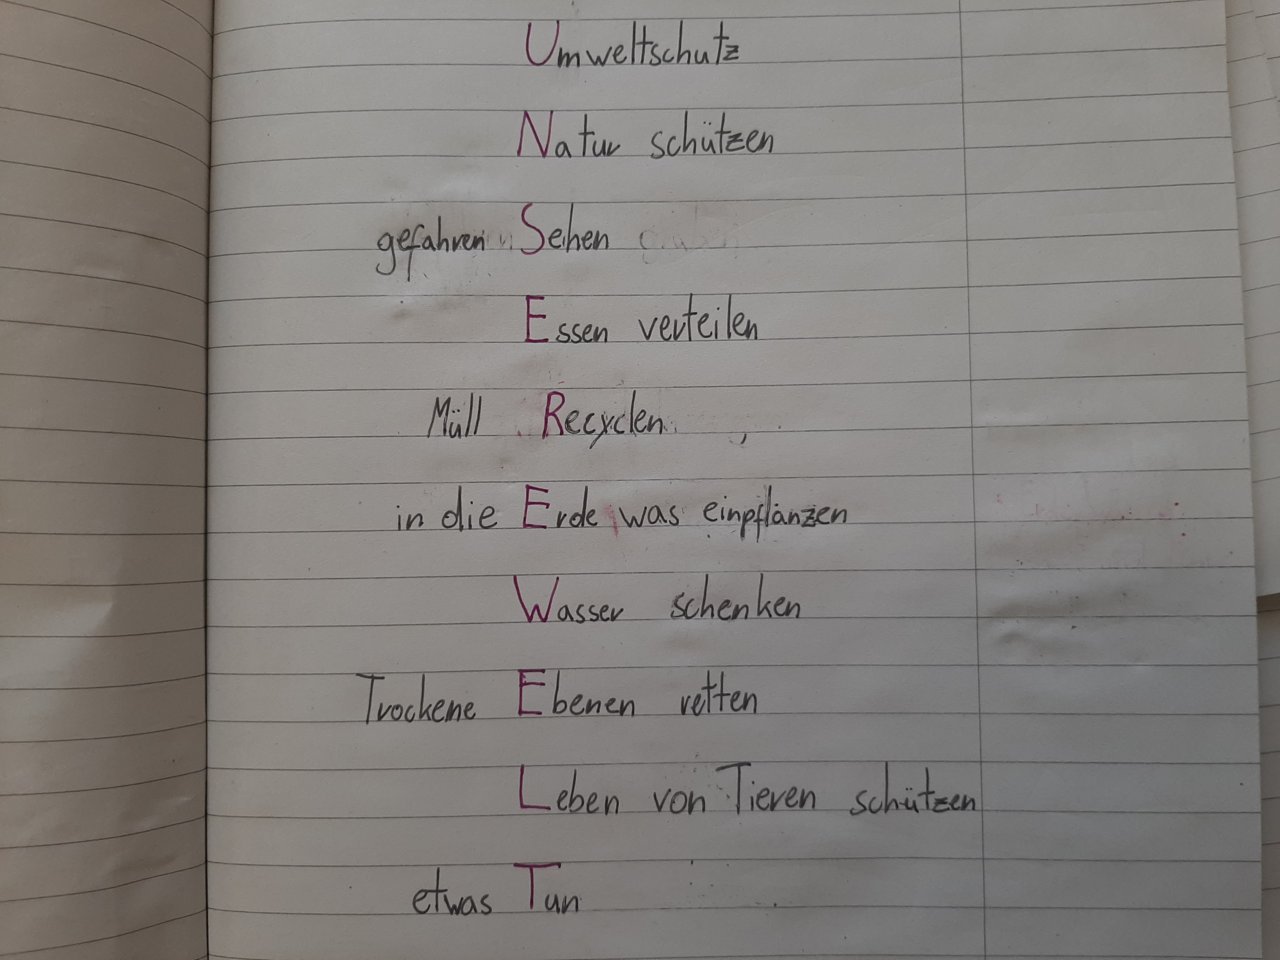 Umweltschutz
Natur schützen
gefahren Sehen
Essen verteilen
Müll Recyclen
in die Erde was einpflanzen
Wasser schenken
Trockene Ebenen retten
Leben von Tieren schützen
etwas Tun